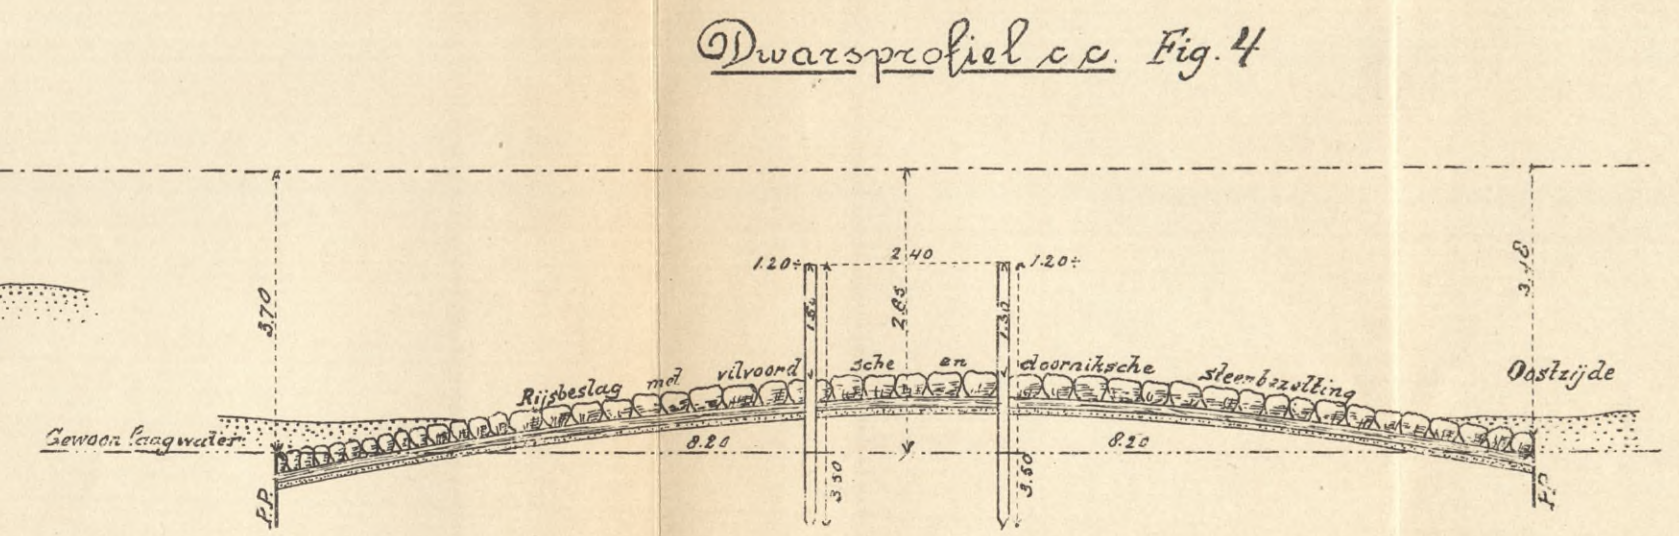 Dwarsprofiel c c. Fig. 4
1.20÷ 2.40 1.20÷
3.70 2.85 1.30 3.18
Rijsbeslag met vilvoordsche en doorniksche steenbezetting
Oostzijde
Gewoon laagwater
8.20 8.20
3.50 3.50
P.P. P.P.